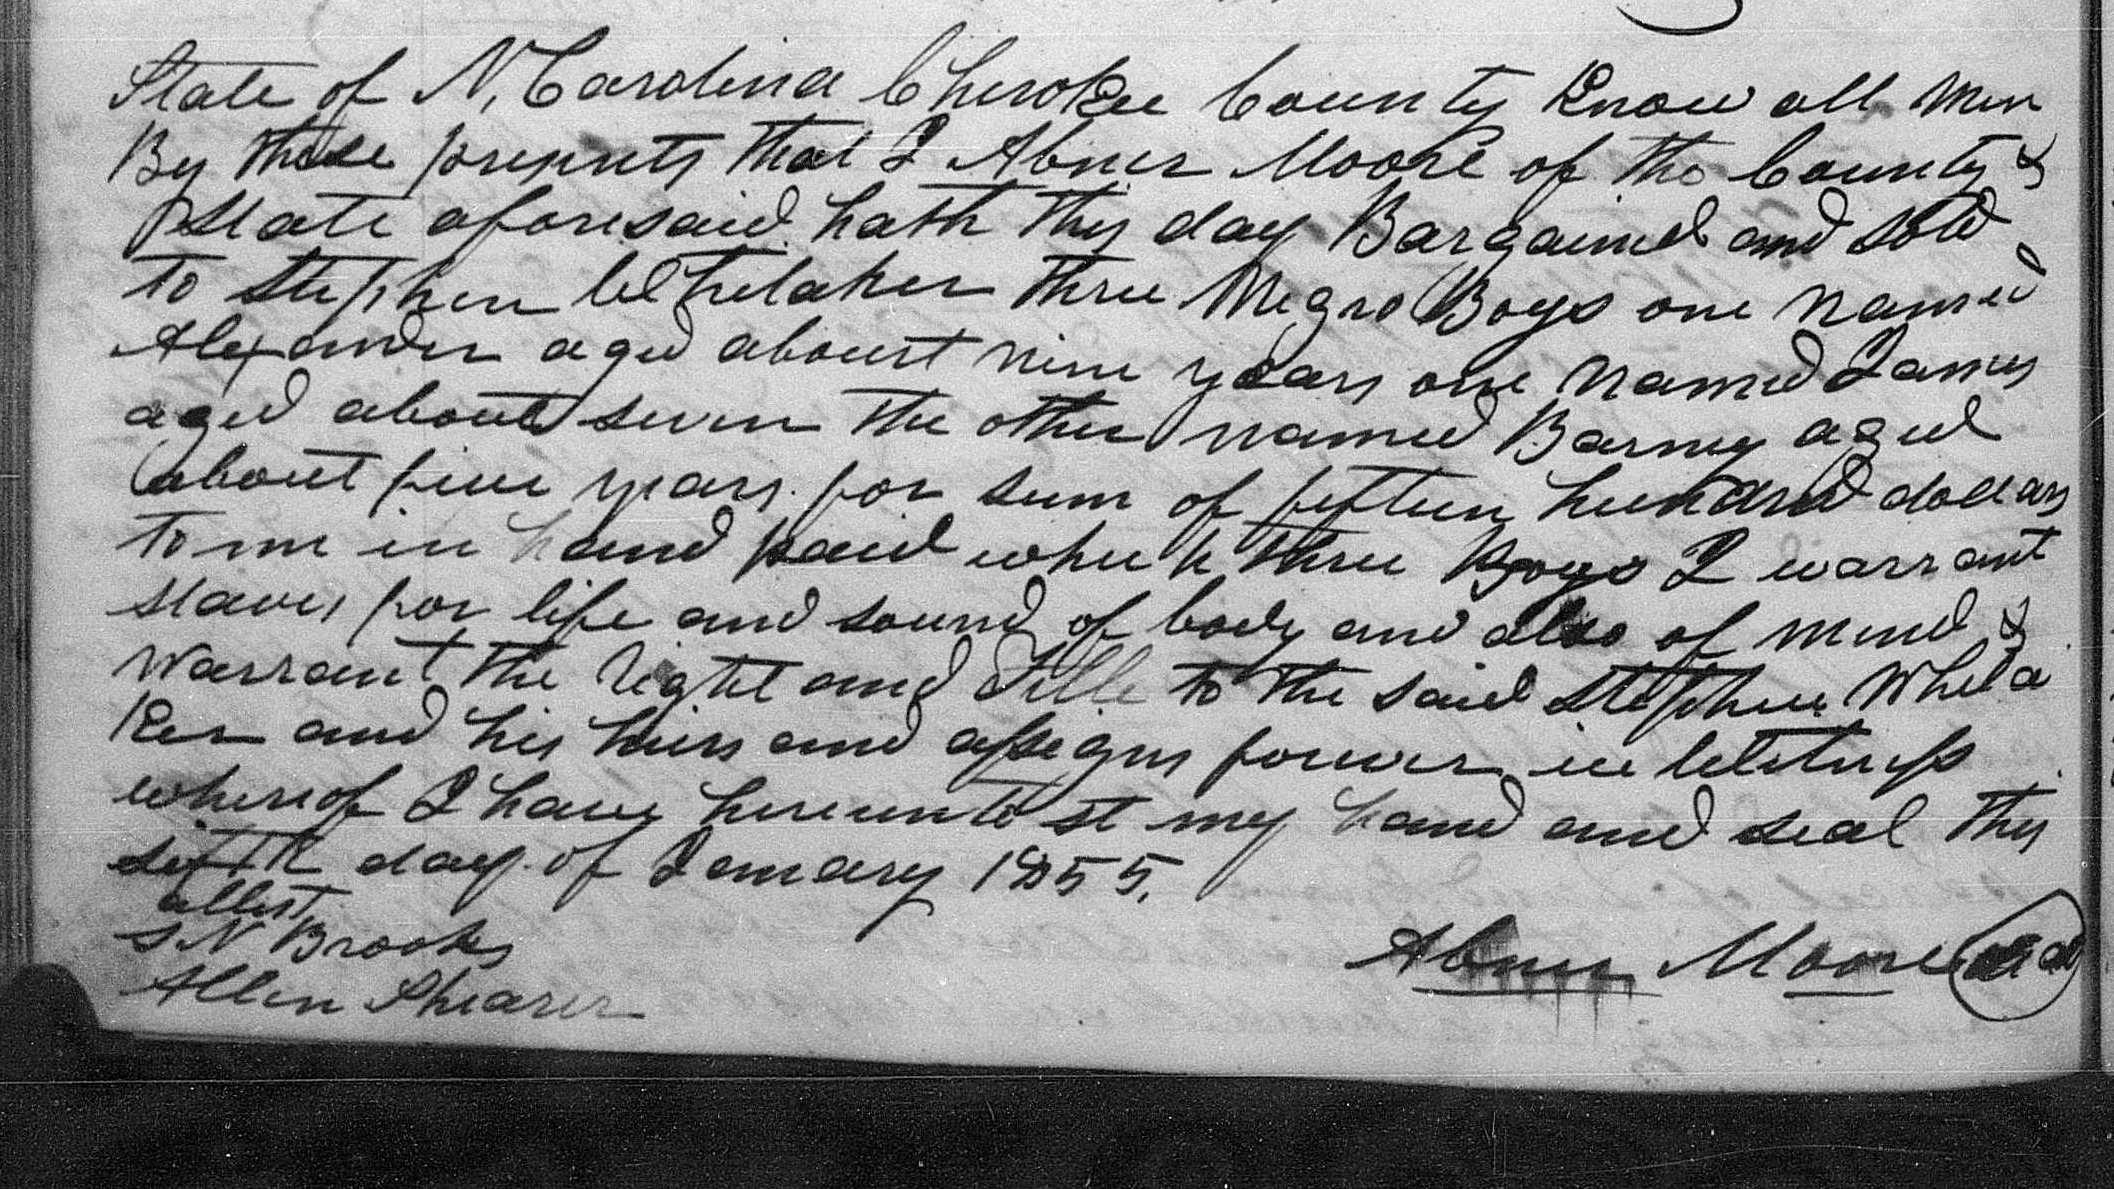 State of N, Carolina Cherokee County Know all Men
By these presents that I Abner Moore of the County &
State aforesaid hath this day Bargained and sold
to Stephen Whitaker three Negro Boys one named
Alexander aged about nine years one named James
aged about seven the other named Barney aged
about five years for sum of fifteen hundred dollars
to me in hand paid which three Boys I warrant
slaves for life and sound of body and also of mind &
Warrant the right and Title to the said Stephen Whita
ker and his heirs and assigns forever in Witness
whereof I have hereunto set my hand and seal this
day of January 1855.
attest
S N Brooks
Allen Shearer
Abner Moore seal